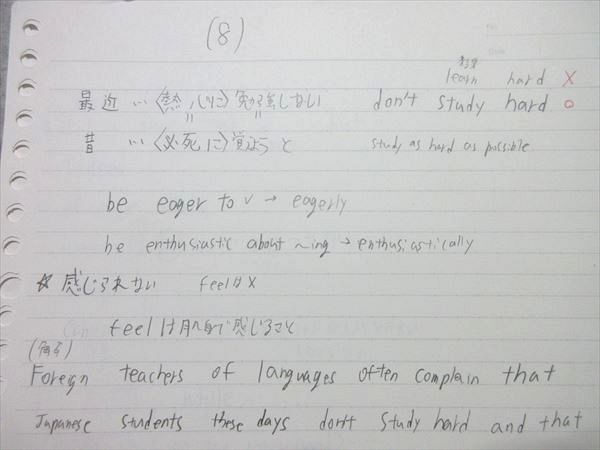 (8)
learn hard ×
最近 … 〈熱心に〉勉強しない don't study hard ○
昔 … 〈必死に〉覚ようと study as hard as possible
be eager to V → eagerly
be enthusiastic about ~ing → enthusiastically
☆ 感じられない feelは×
feelは肌で感じること
Foreign teachers of languages often complain that
Japanese students these days don't study hard and that